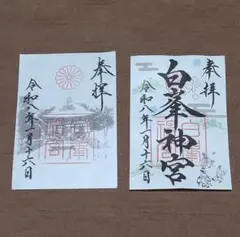 奉拝
令和八年一月十六日
奉拝
白峯神宮
令和八年一月十六日